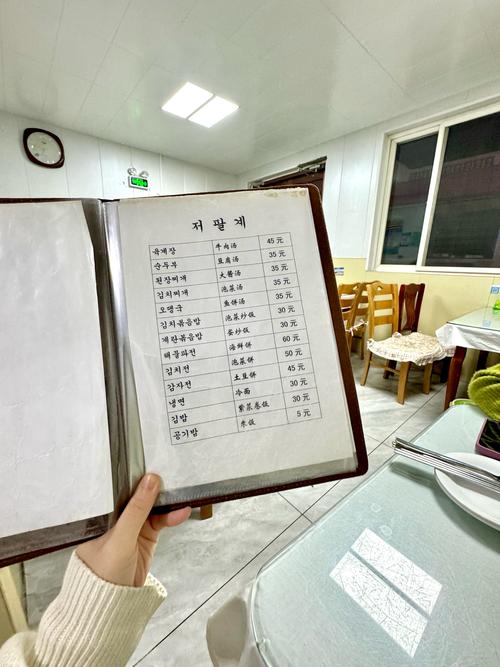 저팔계
육개장 牛肉汤 45 元
순두부 豆腐汤 35 元
된장찌개 大酱汤 35 元
김치찌개 泡菜汤 35 元
오뎅국 鱼饼汤 35 元
김치볶음밥 泡菜炒饭 30 元
계란볶음밥 蛋炒饭 30 元
해물파전 海鲜饼 60 元
김치전 泡菜饼 50 元
감자전 土豆饼 45 元
냉면 冷面 30 元
김밥 紫菜卷饭 30 元
공기밥 米饭 5 元